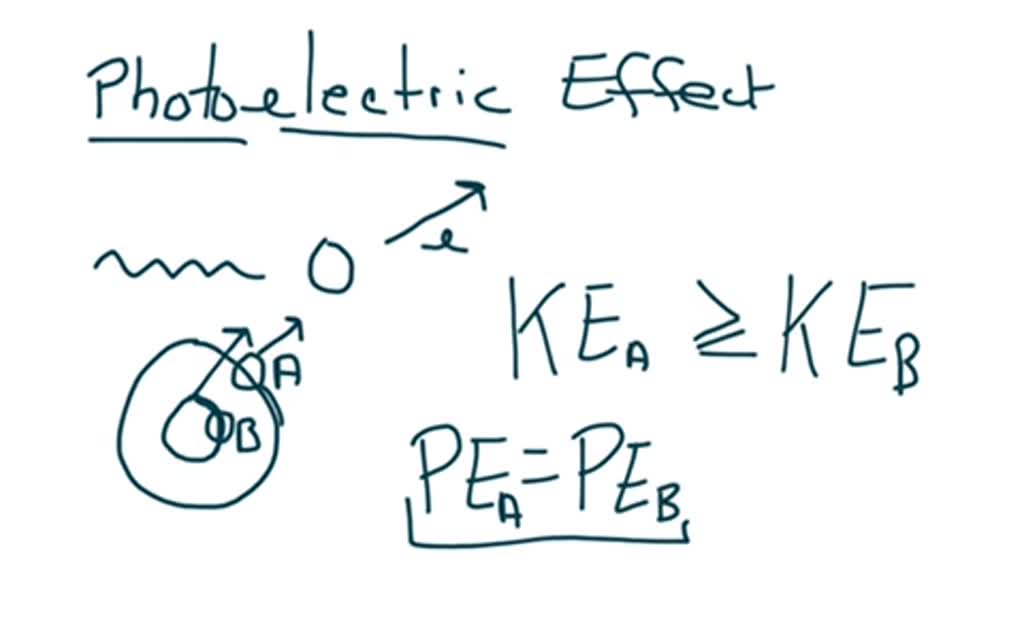 Photoelectric Effect
e
KE_A ≥ KE_B
A
B
PE_A = PE_B